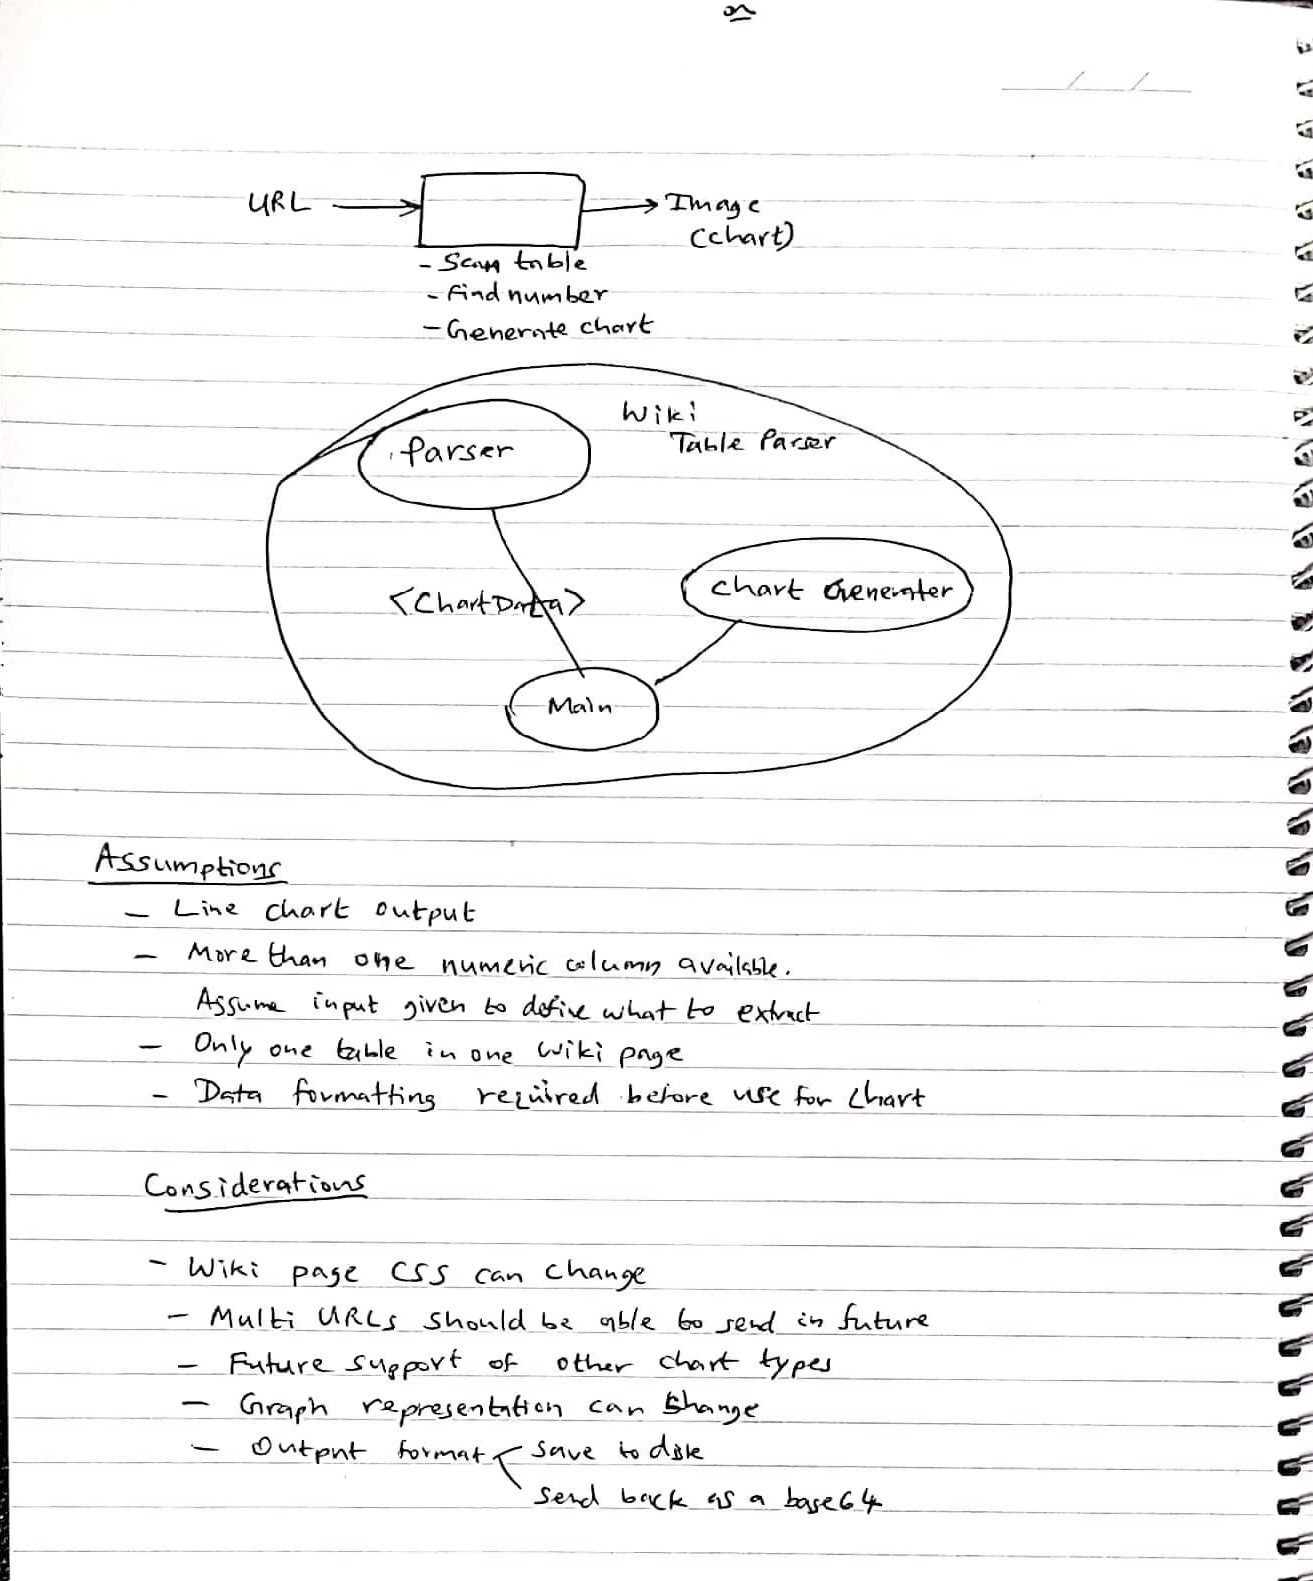 URL
Image
(chart)
- Scan table
- find number
- Generate chart
Wiki
Table Parser
Parser
Chart Generater
<ChartData>
Main
Assumptions
- Line chart output
- More than one numeric column available.
Assume input given to define what to extract
- Only one table in one Wiki page
- Data formatting required before use for chart
Considerations
- Wiki page CSS can change
- Multi URLs should be able to send in future
- Future support of other chart types
- Graph representation can change
- Output format save to disk
send back as a base64